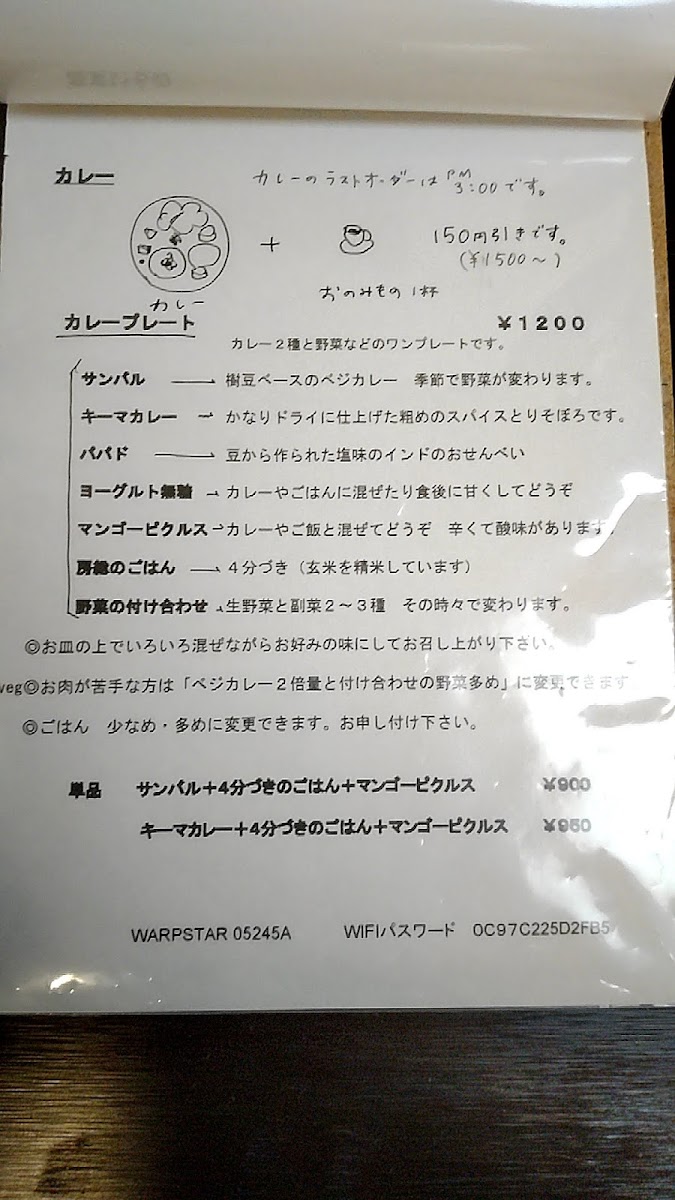 カレー カレーのラストオーダーは PM 3:00です。
+ 150円引きです。
(¥1500～)
カレー おのみもの 1杯
カレープレート ￥１２００
カレー２種と野菜などのワンプレートです。
サンバル ― 樹豆ベースのベジカレー 季節で野菜が変わります。
キーマカレー ― かなりドライに仕上げた粗めのスパイスとりそぼろです。
パパド ― 豆から作られた塩味のインドのおせんべい
ヨーグルト無糖 ― カレーやごはんに混ぜたり食後に甘くしてどうぞ
マンゴーピクルス ― カレーやご飯と混ぜてどうぞ 辛くて酸味があります。
房総のごはん ― ４分づき（玄米を精米しています）
野菜の付け合わせ 生野菜と副菜２～３種 その時々で変わります。
◎お皿の上でいろいろ混ぜながらお好みの味にしてお召し上がり下さい。
veg◎お肉が苦手な方は「ベジカレー２倍量と付け合わせの野菜多め」に変更できます
◎ごはん 少なめ・多めに変更できます。お申し付け下さい。
単品 サンバル＋４分づきのごはん＋マンゴーピクルス ￥900
キーマカレー＋４分づきのごはん＋マンゴーピクルス ￥950
WARPSTAR 05245A WIFIパスワード 0C97C225D2FB5